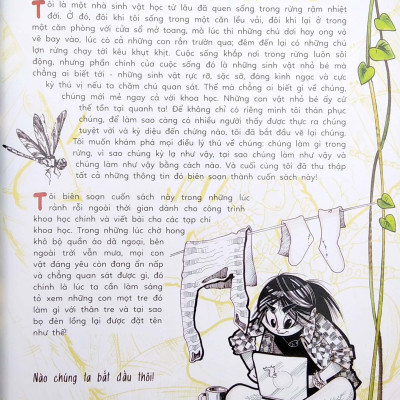 Tôi là một nhà sinh vật học từ lâu đã quen sống trong rừng rậm nhiệt
đới. Ở đó, đôi khi tôi sống trong một căn lều vải, đôi khi lại ở trong
một căn phòng với cửa sổ mở toang, mà lúc thì những chú dơi hay ong vò
vẽ bay vào, lúc có cả những con rắn trườn qua; đêm đến lại có những chú
lợn rừng chạy tới kêu khụt khịt. Cuộc sống khắp nơi trong rừng luôn sôi
động, nhưng phần chính của cuộc sống đó là những sinh vật nhỏ bé mà
chẳng ai biết tới - những sinh vật rực rỡ, sặc sỡ, đáng kinh ngạc và cực
kỳ thú vị nếu ta chăm chú quan sát. Thế mà chẳng ai biết gì về chúng,
chúng mới mẻ ngay cả với khoa học. Những con vật nhỏ bé ấy cứ
thế tồn tại quanh ta! Để không chỉ có riêng mình tôi thán phục
chúng, để làm sao càng có nhiều người thấy được thực ra chúng
tuyệt vời và kỳ diệu đến chừng nào, tôi đã bắt đầu vẽ lại chúng.
Tôi muốn khám phá mọi điều lý thú về chúng: chúng làm gì trong
rừng, vì sao chúng kỳ lạ như vậy, tại sao chúng làm như vậy và
chúng làm như vậy bằng cách nào. Và cuối cùng tôi đã thu thập
tất cả những thông tin đó biên soạn thành cuốn sách này!
Tôi biên soạn cuốn sách này trong những lúc
rảnh rỗi ngoài thời gian dành cho công trình
khoa học chính và viết bài cho các tạp chí
khoa học. Trong những lúc chờ hong
khô bộ quần áo dã ngoại, bên
ngoài trời vẫn mưa, mọi con
vật đáng yêu còn đang ẩn nấp
và chẳng quan sát được gì, đó
chính là lúc ta cần làm sáng
tỏ xem những con mọt tre đó
làm gì với thân tre và tại sao
bọ đèn lồng lại được đặt tên
như thế!
Nào chúng ta bắt đầu thôi!